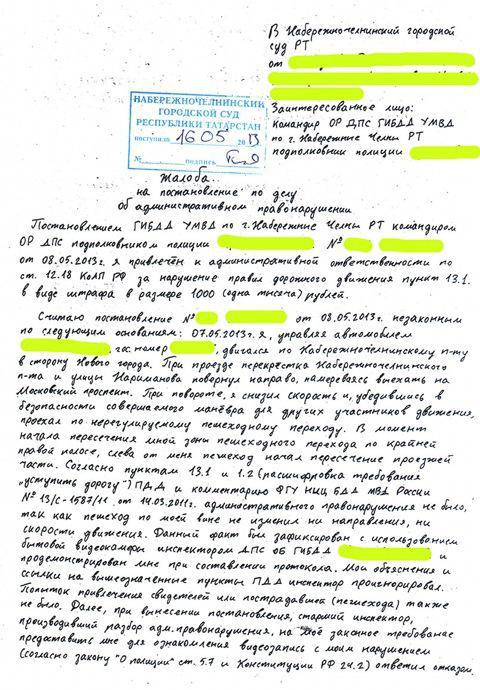 В Набережночелнинский городской
суд РТ
от
Заинтересованное лицо:
Командир ОР ДПС ГИБДД УМВД
по г. Набережные Челны РТ
подполковник полиции
НАБЕРЕЖНОЧЕЛНИНСКИЙ
ГОРОДСКОЙ СУД
РЕСПУБЛИКИ ТАТАРСТАН
поступило 16 05 2013
№ подпись
Жалоба
на постановление по делу
об административном правонарушении
Постановлением ГИБДД УМВД по г. Набережные Челны РТ командиром
ОР ДПС подполковником полиции №
от 08.05.2013г. я привлечён к административной ответственности по
ст. 12.18 КоАП РФ за нарушение правил дорожного движения пункт 13.1.
в виде штрафа в размере 1000 (одна тысяча) рублей.
Считаю постановление № от 08.05.2013г. незаконным
по следующим основаниям: 07.05.2013г. я, управляя автомобилем
, гос. номер , двигался по Набережночелнинскому п-ту
в сторону Нового города. При проезде перекрёстка Набережночелнинского
п-та и улицы Нариманова повернул направо, намереваясь выехать на
Московский проспект. При повороте, я снизил скорость и, убедившись в
безопасности совершаемого манёвра для других участников движения,
проехал по нерегулируемому пешеходному переходу. В момент
начала пересечения мной зоны пешеходного перехода по крайней
правой полосе, слева от меня пешеход начал пересечение проезжей
части. Согласно пунктам 13.1 и 1.2 (расшифровка требования
"уступить дорогу") ПДД и комментарию ФГУ НИЦ БДД МВД России
№ 13/с-1587/11 от 14.03.2011г. административного правонарушения не было,
так как пешеход по моей вине не изменил ни направления, ни
скорости движения. Данный факт был зафиксирован с использованием
бытовой видеокамеры инспектором ДПС ОБ ГИБДД и
продемонстрирован мне при составлении протокола. Мои объяснения и
ссылки на вышеозначенные пункты ПДД инспектор проигнорировал.
Попыток привлечения свидетелей или пострадавшей (пешехода) также
не было. Далее, при вынесении постановления, старший инспектор,
производивший разбор адм. правонарушения, на моё законное требование
предоставить мне для ознакомления видеозапись с моим нарушением
(согласно закону "О полиции" ст. 5.7 и Конституции РФ 24.2) ответил отказом.